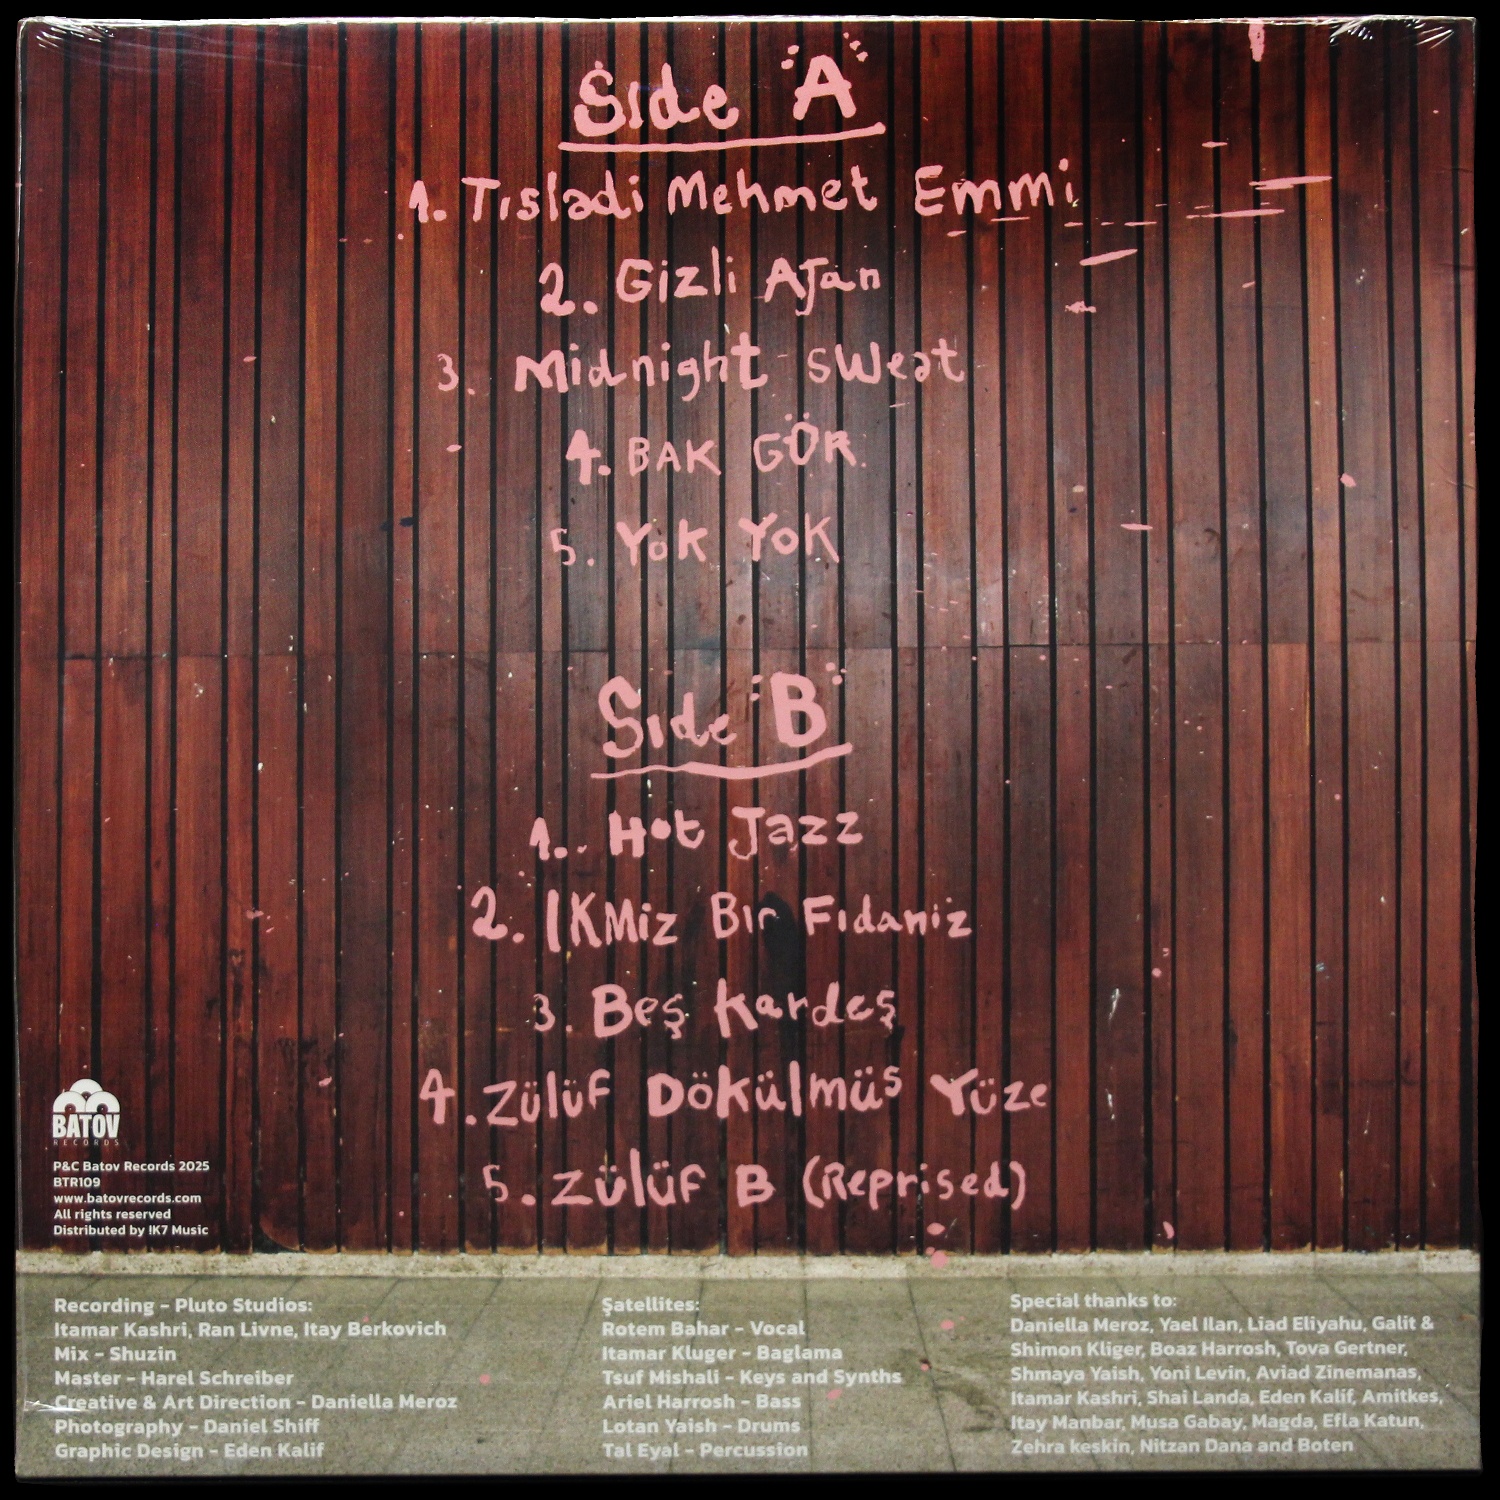 Side A
1. Tısladi Mehmet Emmi
2. Gizli Ajan
3. Midnight sweat
4. BAK GÖR
5. Yok Yok
Side B
1. Hot Jazz
2. IKMiz Bır Fıdaniz
3. Beş Kardeş
4. Zülüf Dökülmüs Yüze
5. Zülüf B (Reprised)
BATOV
RECORDS
P&C Batov Records 2025
BTR109
www.batovrecords.com
All rights reserved
Distributed by !K7 Music
Recording - Pluto Studios:
Itamar Kashri, Ran Livne, Itay Berkovich
Mix - Shuzin
Master - Harel Schreiber
Creative & Art Direction - Daniella Meroz
Photography - Daniel Shiff
Graphic Design - Eden Kalif
Şatellites:
Rotem Bahar - Vocal
Itamar Kluger - Baglama
Tsuf Mishali - Keys and Synths
Ariel Harrosh - Bass
Lotan Yaish - Drums
Tal Eyal - Percussion
Special thanks to:
Daniella Meroz, Yael Ilan, Liad Eliyahu, Galit &
Shimon Kliger, Boaz Harrosh, Tova Gertner,
Shmaya Yaish, Yoni Levin, Aviad Zinemanas,
Itamar Kashri, Shai Landa, Eden Kalif, Amitkes,
Itay Manbar, Musa Gabay, Magda, Efla Katun,
Zehra keskin, Nitzan Dana and Boten